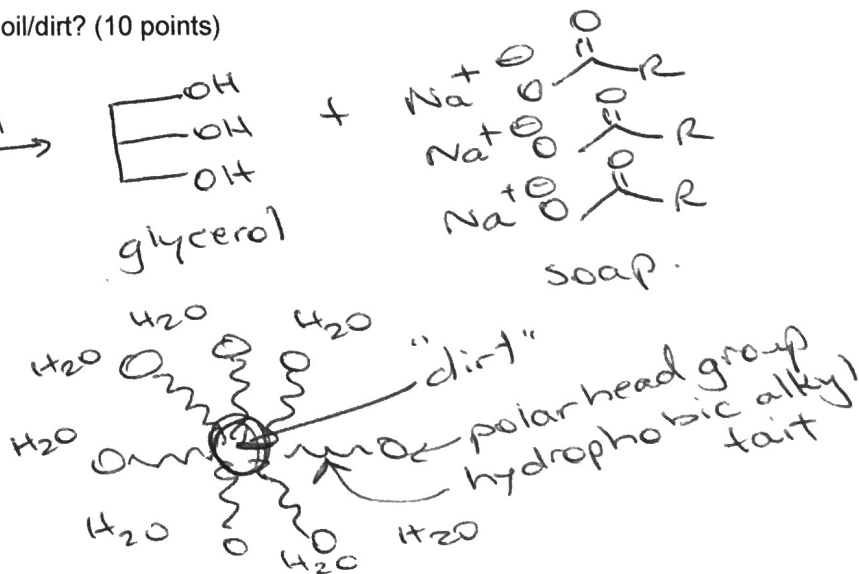 oil/dirt? (10 points)
OH
OH
OH
+
Na+ ⊖O O R
Na+ ⊖O O R
Na+ ⊖O O R
glycerol
soap.
H2O
H2O
H2O
H2O
H2O
H2O
H2O
"dirt"
polar head group
hydrophobic alkyl
tait